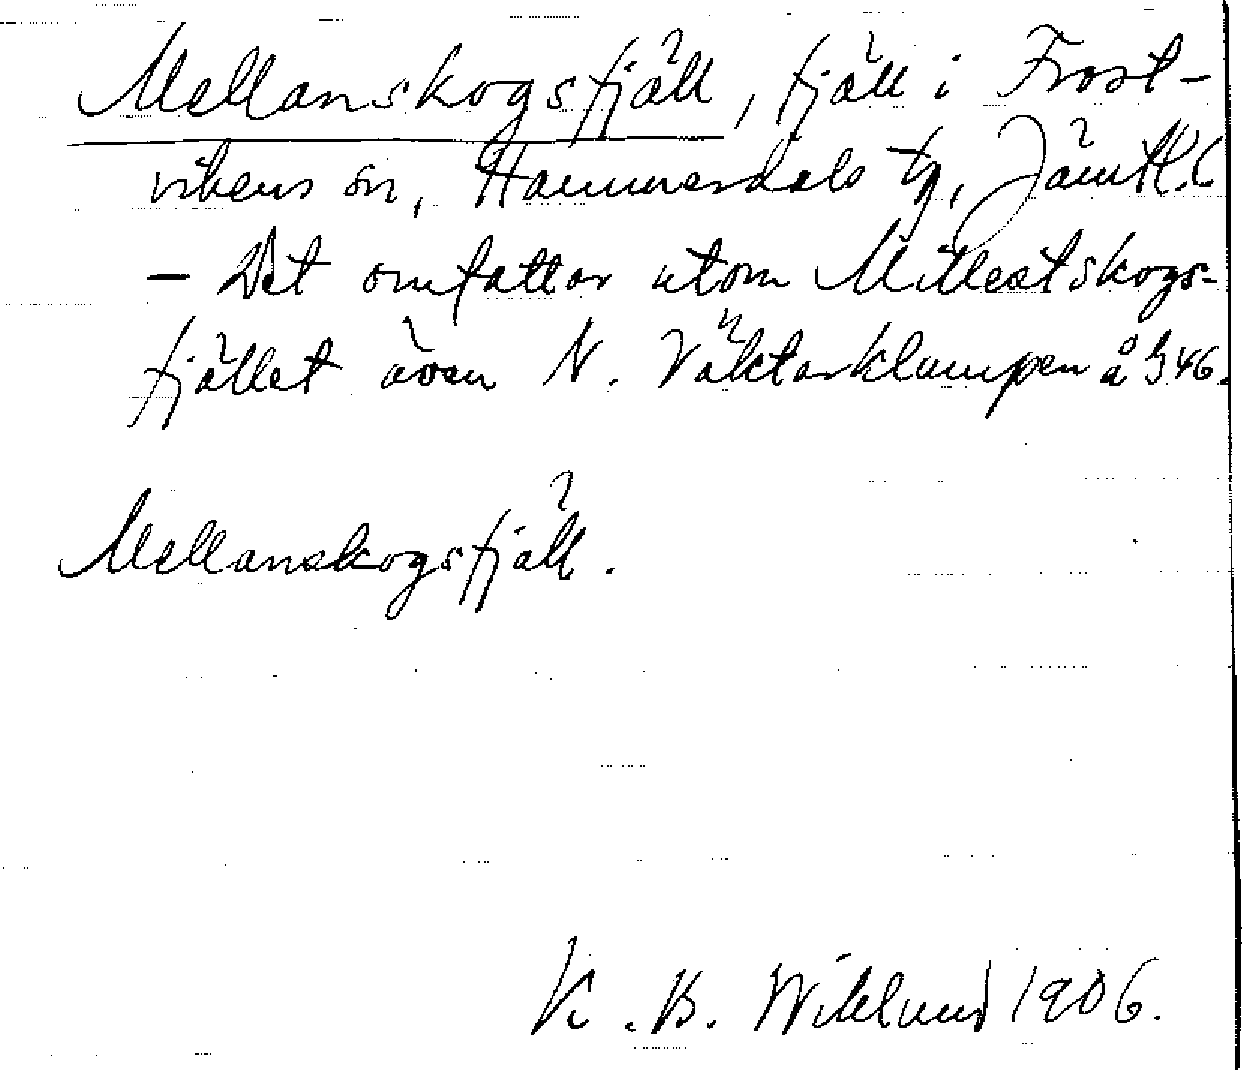 Mellanskogsfjäll, fjäll i Frost-
vikens sn, Hammerdals tg, Jämtl. l
– Det omfattar utom Mittelstskogs-
fjället även N. Väktarklumpen å 346.
Mellanskogsfjäll.
K. B. Wiklund 1906.